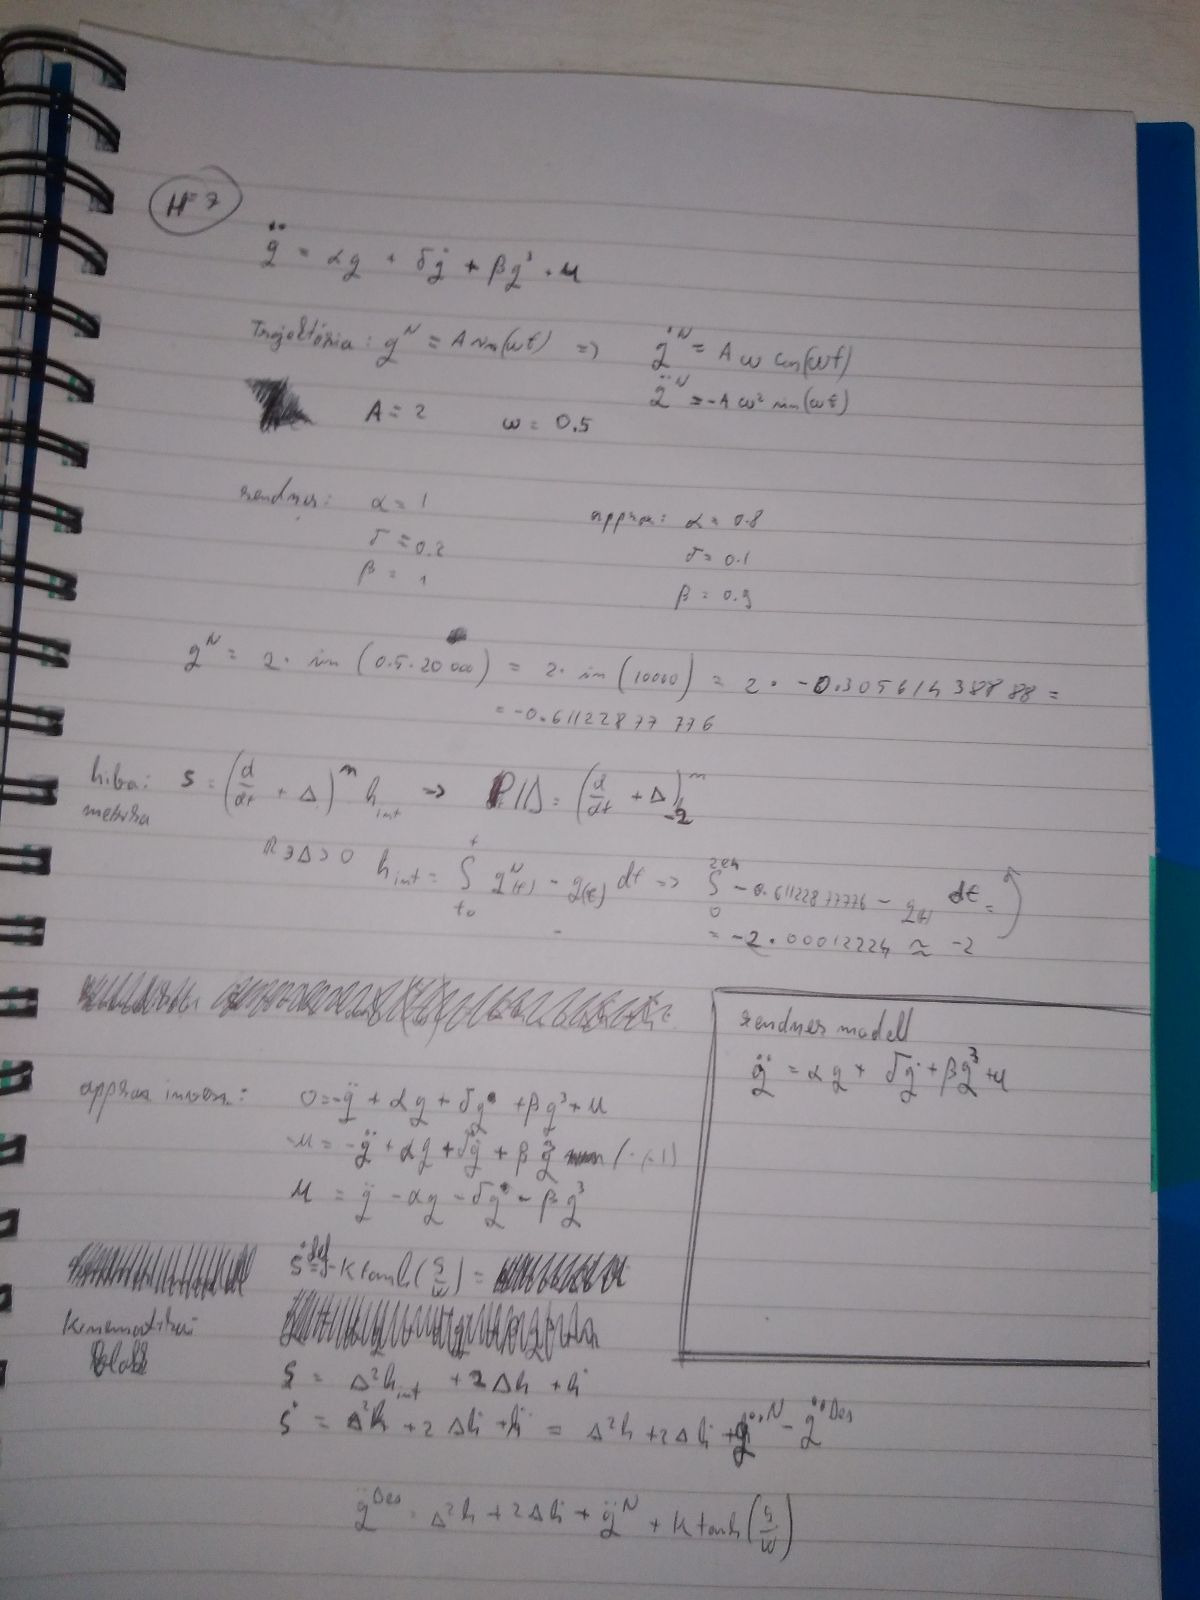 H=7
q̈ = αq + δq̇ + βq³ + u
Trajektória: q^N = A sin(ωt) ⇒ q̇^N = Aω cos(ωt)
q̈^N = -Aω² sin(ωt)
A = 2 ω = 0.5
rendszer: α = 1 approx: α = 0.8
δ = 0.2 δ = 0.1
β = 1 β = 0.9
q^N = 2· sin(0.5·20000) = 2· sin(10000) = 2· -0.30561438888 =
= -0.61122877776
hiba: S = (d/dt + Δ)^m h_int → PID = (d/dt + Δ)^m -2
metrika
R∋Δ>0 h_int = ∫_{t0}^{t} q^N(t) - q(t) dt ⇒ ∫_0 -0.61122877776 - q(t) dt =
= -2.00012224 ≈ -2
rendszer modell
q̈ = αq + δq̇ + βq³ + u
approx inverz: 0 = -q̈ + αq + δq̇ + βq³ + u
-u = -q̈ + αq + δq̇ + βq³ (·(-1)
u = q̈ - αq - δq̇ - βq³
Ṡ =^{def} -K tanh(S/w) =
Kinematikai
Blokk
S = Δ²h_int + 2Δh + ḣ
Ṡ = Δ²h + 2Δḣ + ḧ = Δ²h + 2Δḣ + q̈^N - q̈^Des
q̈^Des = Δ²h + 2Δḣ + q̈^N + K tanh(S/w)